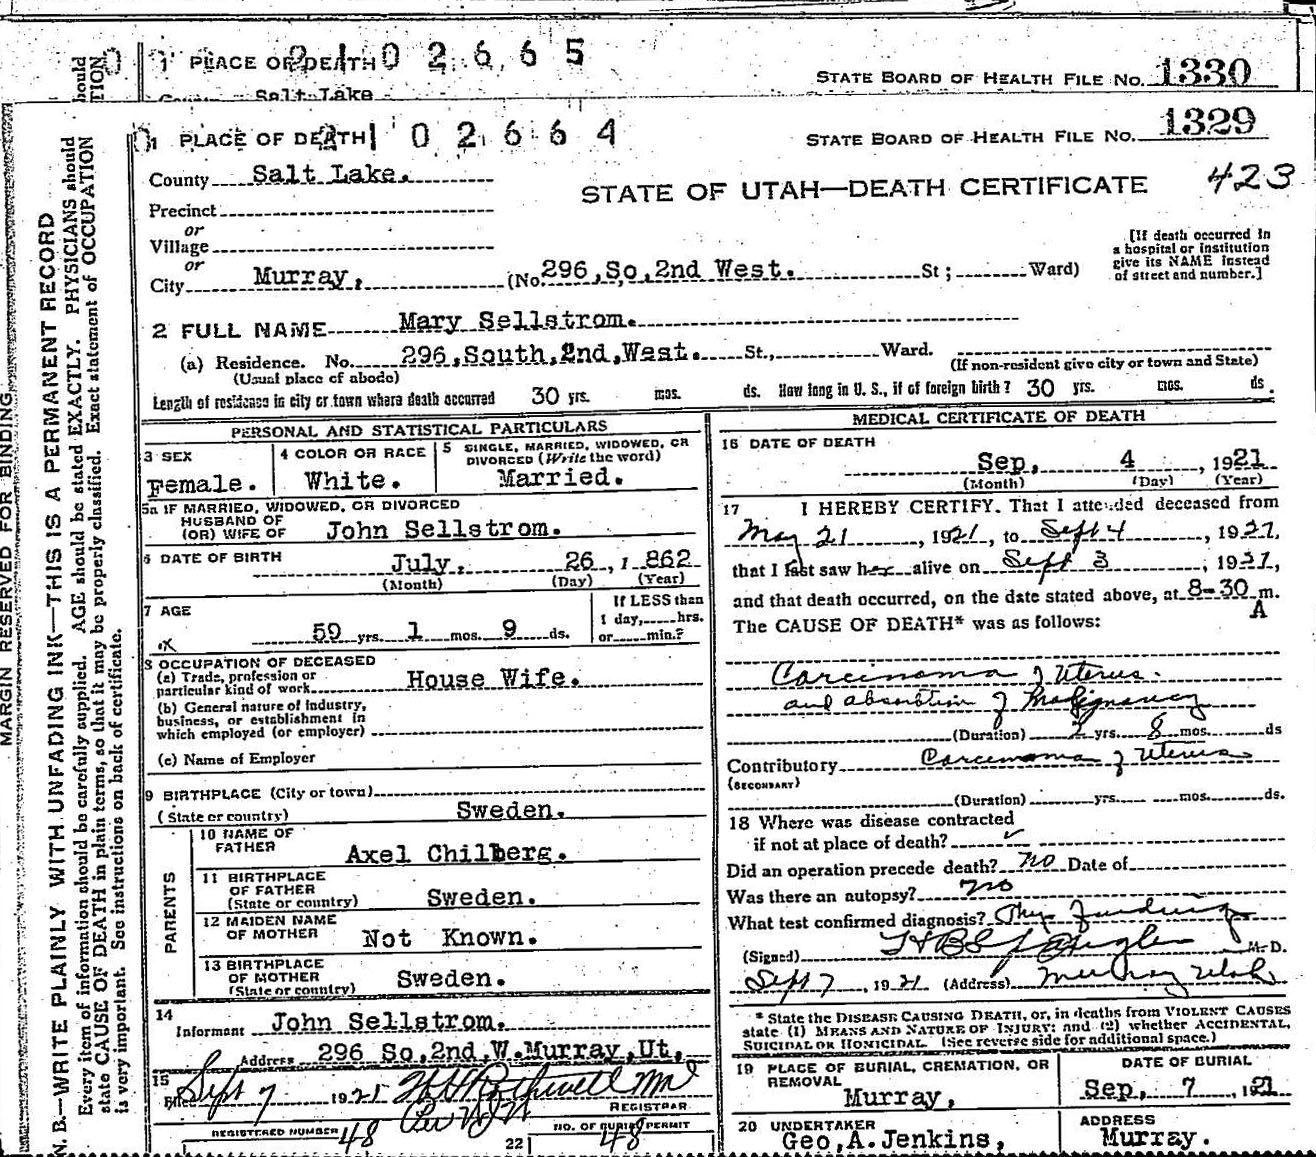 1 PLACE OF DEATH 0 2 6 6 5
STATE BOARD OF HEALTH FILE NO. 1330
Salt Lake
1 PLACE OF DEATH 0 2 6 6 4
STATE BOARD OF HEALTH FILE NO. 1329
County Salt Lake.
STATE OF UTAH—DEATH CERTIFICATE 423
Precinct
or
Village
or
City Murray, (No. 296, So, 2nd West. St; Ward)
[If death occurred in
a hospital or institution
give its NAME instead
of street and number.]
2 FULL NAME Mary Sellstrom.
(a) Residence. No. 296, South, 2nd, West. St., Ward.
(Usual place of abode) (If non-resident give city or town and State)
Length of residence in city or town where death occurred 30 yrs. mos. ds. How long in U. S., if of foreign birth? 30 yrs. mos. ds.
PERSONAL AND STATISTICAL PARTICULARS
3 SEX
Female.
4 COLOR OR RACE
White.
5 SINGLE, MARRIED, WIDOWED, OR
DIVORCED (Write the word)
Married.
5a IF MARRIED, WIDOWED, OR DIVORCED
HUSBAND OF
(OR) WIFE OF John Sellstrom.
6 DATE OF BIRTH July, 26, 1862
(Month) (Day) (Year)
7 AGE
59 yrs. 1 mos. 9 ds.
If LESS than
1 day, hrs.
or min.?
8 OCCUPATION OF DECEASED
(a) Trade, profession or
particular kind of work House Wife.
(b) General nature of Industry,
business, or establishment in
which employed (or employer)
(c) Name of Employer
9 BIRTHPLACE (City or town)
(State or country) Sweden.
PARENTS
10 NAME OF
FATHER Axel Chilberg.
11 BIRTHPLACE
OF FATHER
(State or country) Sweden.
12 MAIDEN NAME
OF MOTHER Not Known.
13 BIRTHPLACE
OF MOTHER
(State or country) Sweden.
14
Informant John Sellstrom.
Address 296 So, 2nd, W. Murray, Ut,
15
Filed Sept 7 1921
REGISTRAR
REGISTERED NUMBER 48
22 NO. OF BURIAL PERMIT 48
MEDICAL CERTIFICATE OF DEATH
16 DATE OF DEATH
Sep, 4, 1921
(Month) (Day) (Year)
17 I HEREBY CERTIFY. That I attended deceased from
May 21, 1921, to Sept 4, 1921,
that I last saw her alive on Sept 3, 1921,
and that death occurred, on the date stated above, at 8-30 m.
A
The CAUSE OF DEATH* was as follows:
Carcinoma of Uterus.
and absorbtion of Malignancy
(Duration) 2 yrs. 8 mos. ds
Contributory Carcinoma of Uterus
(SECONDARY)
(Duration) yrs. mos. ds.
18 Where was disease contracted
if not at place of death?
Did an operation precede death? no Date of
Was there an autopsy? no
What test confirmed diagnosis?
(Signed) M.D.
Sept 7, 1921 (Address) Murray Utah
* State the DISEASE CAUSING DEATH, or, in deaths from VIOLENT CAUSES
state (1) MEANS AND NATURE OF INJURY; and (2) whether ACCIDENTAL,
SUICIDAL OR HOMICIDAL. (See reverse side for additional space.)
19 PLACE OF BURIAL, CREMATION, OR
REMOVAL
Murray,
DATE OF BURIAL
Sep, 7, 1921
20 UNDERTAKER
Geo, A. Jenkins,
ADDRESS
Murray.
MARGIN RESERVED FOR BINDING
N. B.—WRITE PLAINLY WITH UNFADING INK—THIS IS A PERMANENT RECORD
Every item of information should be carefully supplied. AGE should be stated EXACTLY. PHYSICIANS should
state CAUSE OF DEATH in plain terms, so that it may be properly classified. Exact statement of OCCUPATION
is very important. See instructions on back of certificate.